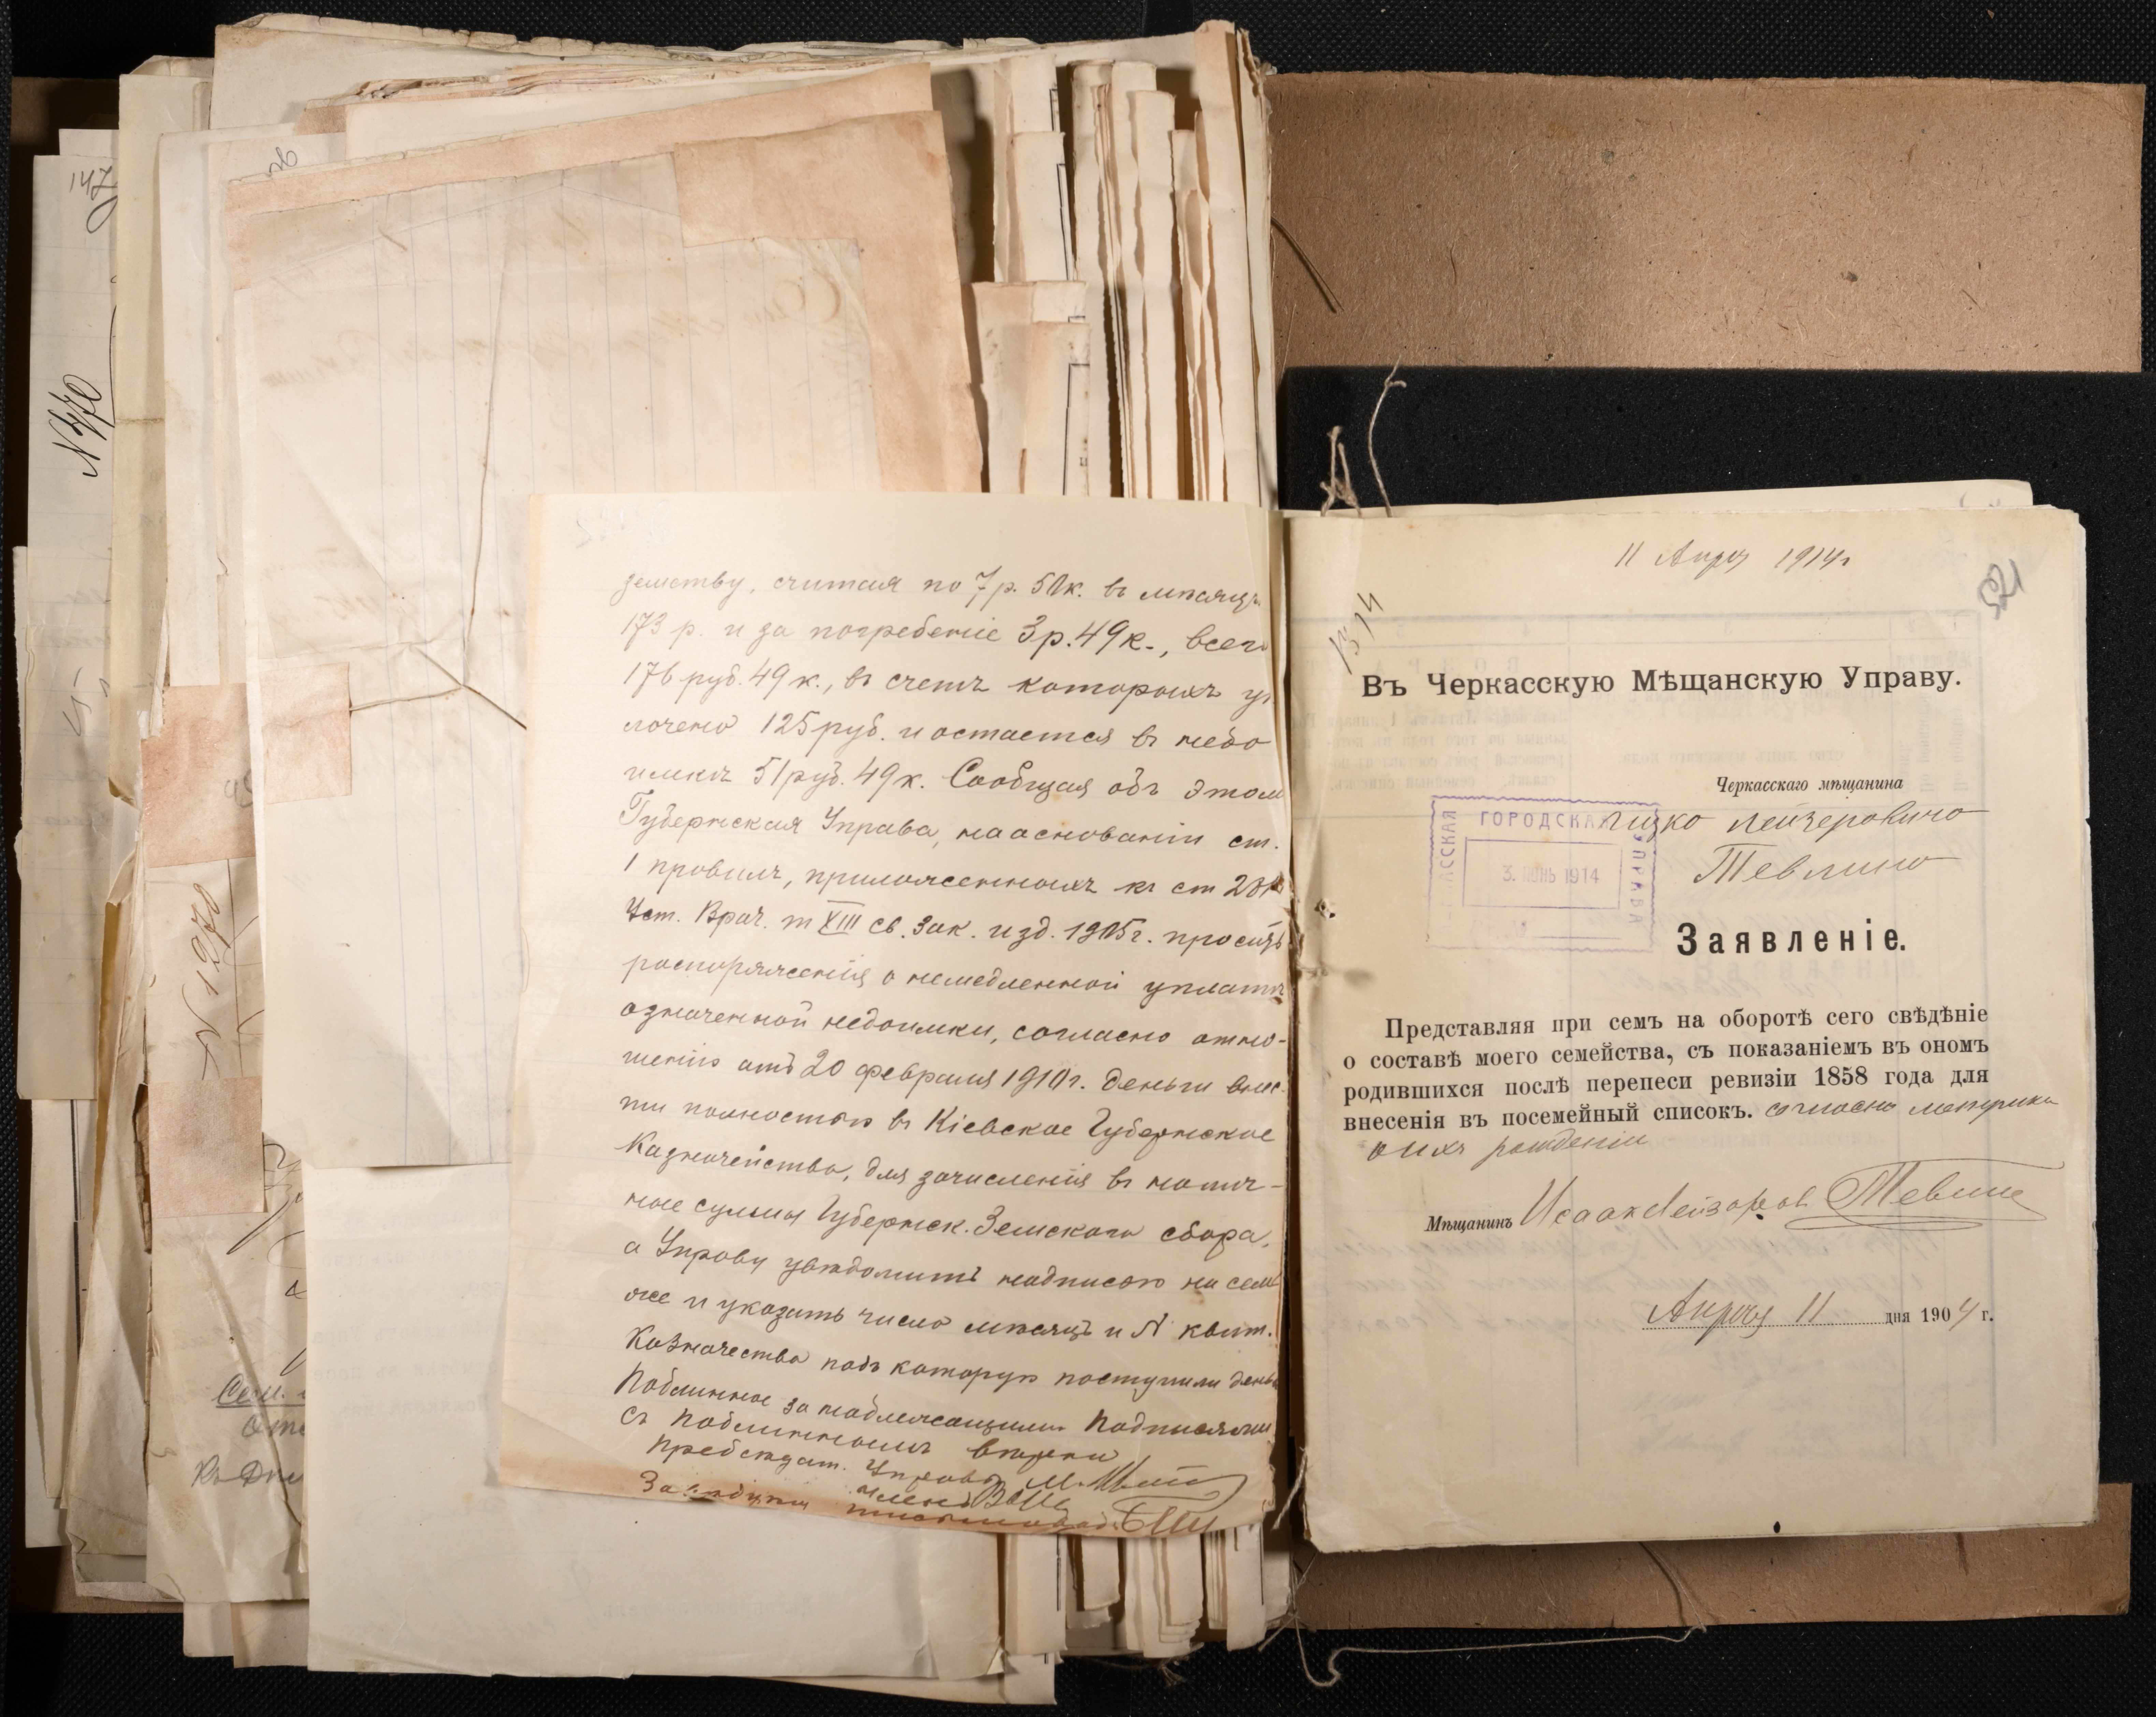 147
N 770
N 1270
Сем.
земству, считая по 7 р. 50 к. въ мѣсяцъ
173 р. и за погребеніе 3 р. 49 к., всего
176 руб. 49 к., въ счетъ которыхъ у
лочено 125 руб. и остается въ недо
имкѣ 51 руб. 49 к. Сообщая объ этом
Губернская Управа, на основаніи ст.
1 правилъ, приложенныхъ къ ст
Уст. Врач. т XIII св. Зак. изд. 1905 г. проситъ
распоряженія о немедленной уплатѣ
означенной недоимки, согласно отно-
шенію отъ 20 февраля 1910 г. деньги внес-
ти полностью въ Кіевское Губернское
Казначейство, для зачисленія въ налич-
ные суммы Губернск. Земскаго сбора,
а Управу увѣдомить надписью на семъ
же и указать число мѣсяцъ и N квит.
Казначества подъ которую поступили деньг
Подлинное за надлежащими подписями
Съ подлиннымъ вѣрно
Председат. Управы
Членъ
11 Апрѣ 1914 г
521
1314
Въ Черкасскую Мѣщанскую Управу.
Черкасскаго мѣщанина
Ицко Лейзеровича
Тевлина
ГОРОДСКАЯ УПРАВА
3. ІЮНЬ 1914
Заявленіе.
Представляя при семъ на оборотѣ сего свѣдѣніе
о составѣ моего семейства, съ показаніемъ въ ономъ
родившихся послѣ переписи ревизіи 1858 года для
внесенія въ посемейный списокъ. согласно метрики
о ихъ рожденіи
Мѣщанинъ Исаак Лейзоров Тевлин
Апрѣля 11 дня 1904 г.